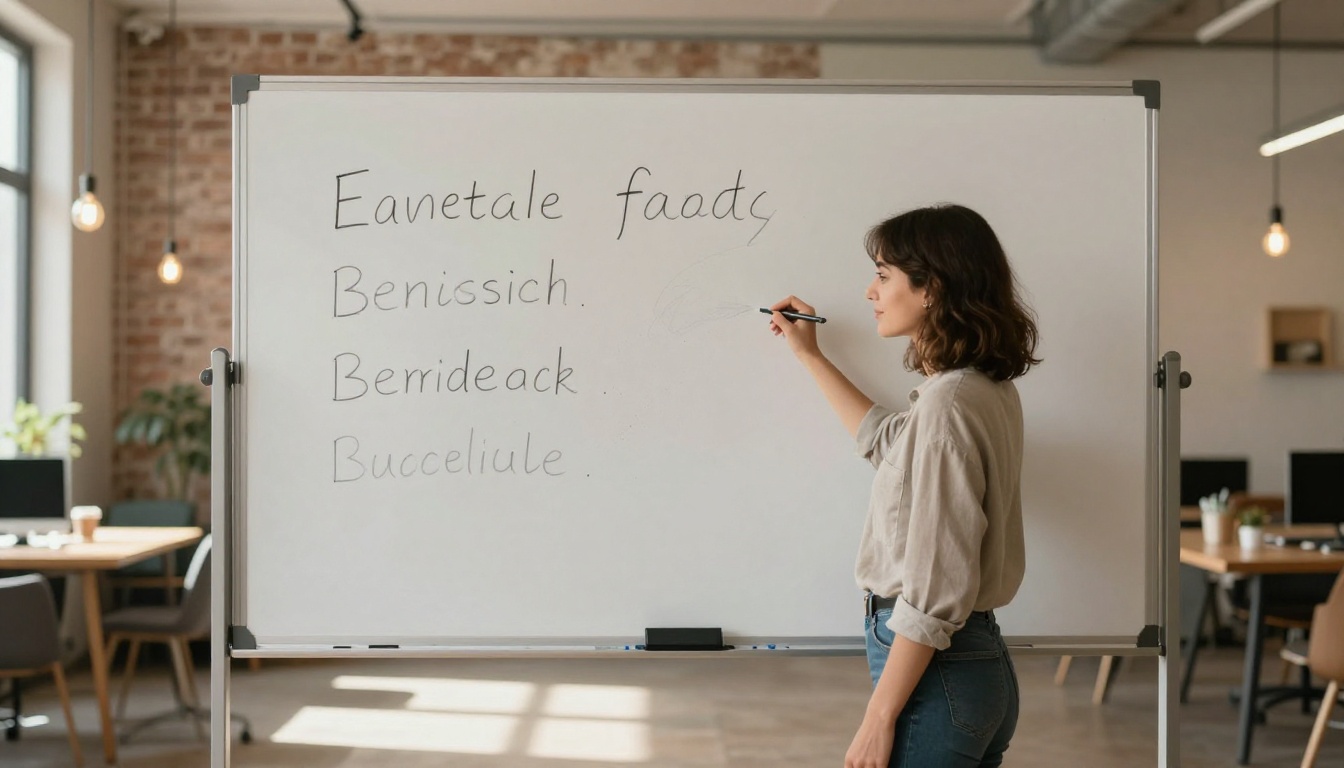 Eanetale faods
Benissich.
Berrideack.
Bucceliule.